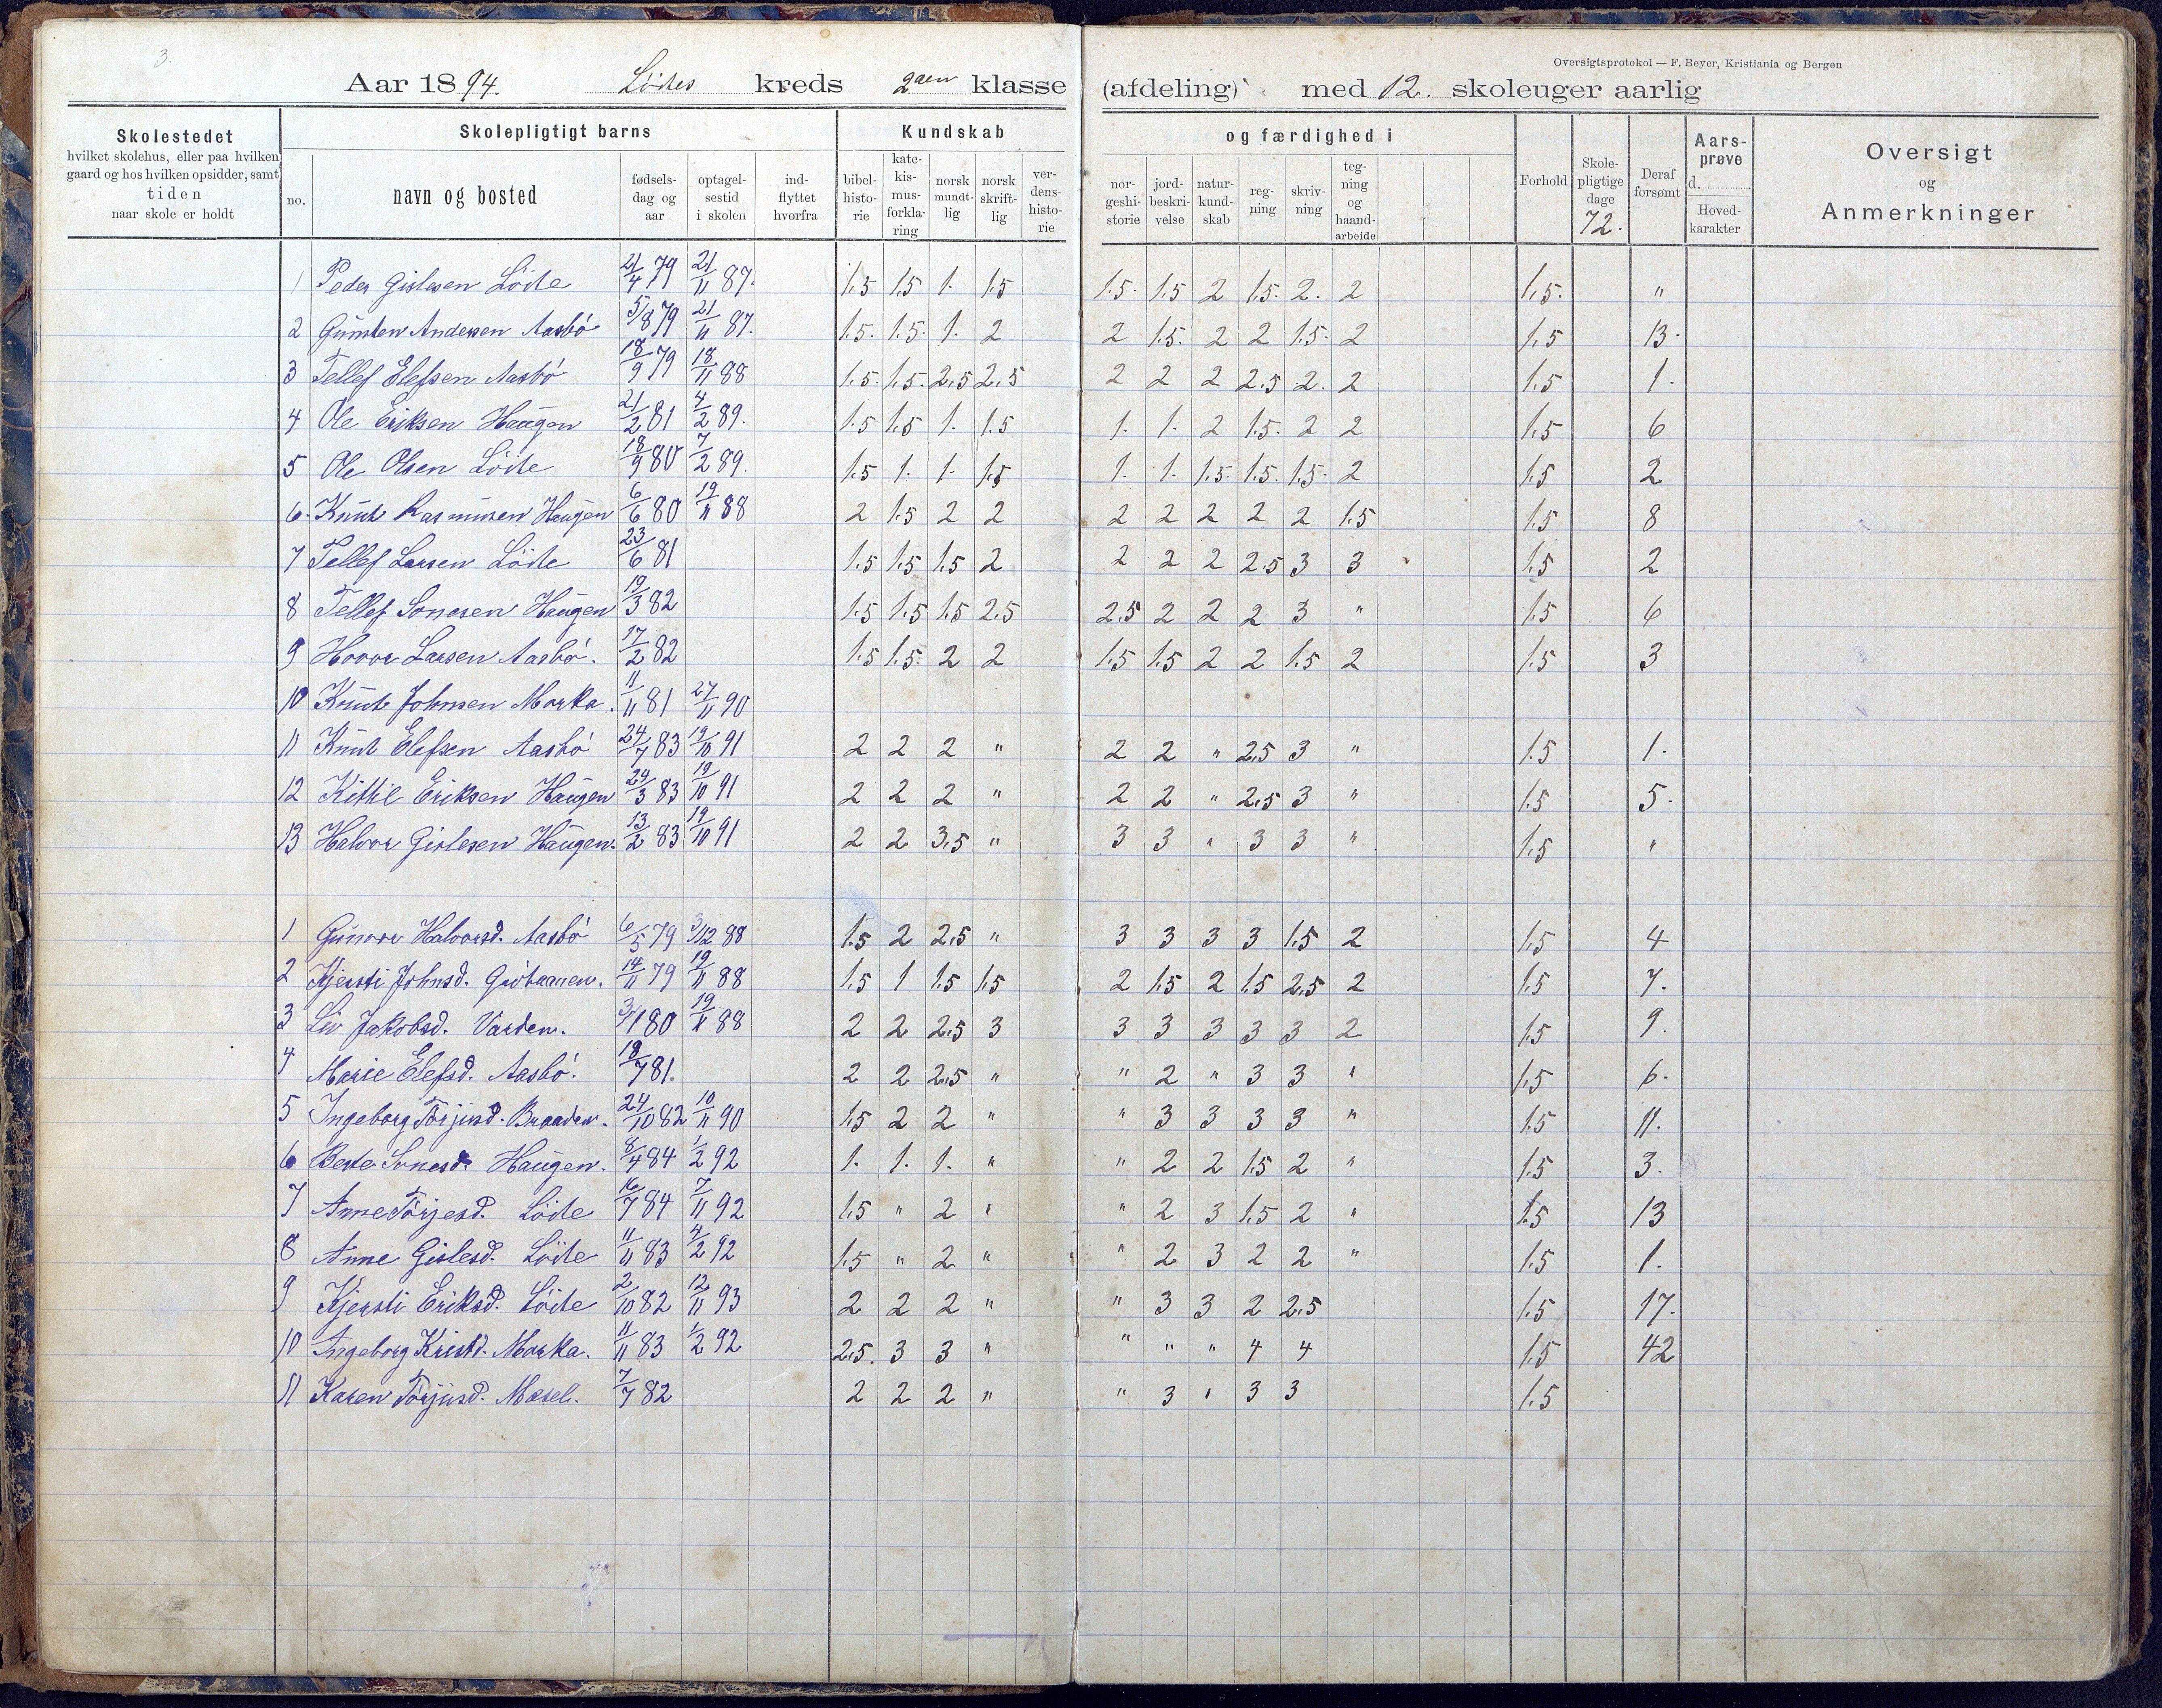 3.
Oversigtsprotokol — F. Beyer, Kristiania og Bergen
Aar 1894. Lödes kreds 2den klasse (afdeling) med 12. skoleuger aarlig
Skolestedet hvilket skolehus, eller paa hvilken gaard og hos hvilken opsidder, samt tiden naar skole er holdt
Skolepligtigt barns
no. navn og bosted fødsels-dag og aar optagel-sestid i skolen ind-flyttet hvorfra
Kundskab og færdighed i
bibel-histo-rie kate-kis-mus-forkla-ring norsk mundt-lig norsk skrift-lig ver-dens-histo-rie nor-geshi-storie jord-beskri-velse natur-kund-skab reg-ning skriv-ning teg-ning og haand-arbeide
Forhold Skole-pligtige dage 72. Deraf forsømt Aars-prøve d. Hoved-karakter Oversigt og Anmerkninger
1 Peder Gislesen Löite 21/4 79 21/11 87. 1.5 1.5 1. 1.5 1.5. 1.5 2 1.5. 2. 2 1.5. "
2 Gunsten Andersen Aasbö 5/8 79 21/11 87. 1.5. 1.5. 1. 2 2 1.5. 2 2 1.5. 2 1.5 13.
3 Tellef Elefsen Aasbö 18/9 79 18/11 88 1.5. 1.5. 2.5 2.5 2 2 2 2.5 2. 2 1.5 1.
4 Ole Eriksen Haugen 21/2 81 4/2 89. 1.5 1.5 1. 1.5 1. 1. 2 1.5. 2 2 1.5 6
5 Ole Olsen Löite 18/9 80 7/2 89. 1.5 1. 1. 1.5 1. 1. 1.5. 1.5. 1.5. 2 1.5 2
6. Knut Rasmusen Haugen 6/6 80 19/11 88 2 1.5 2 2 2 2 2 2 2 1.5 1.5 8
7 Tellef Larsen Löite 23/6 81 1.5 1.5 1.5 2 2 2 2 2.5 3 3 1.5 2
8 Tellef Sonesen Haugen 19/3 82 1.5 1.5 1.5 2.5 2.5 2 2 2 3 " 1.5 6
9 Hovor Larsen Aasbö. 17/2 82 1.5 1.5. 2 2 1.5 1.5 2 2 1.5 2 1.5 3
10 Knut Johnsen Morka. 11/11 81 27/11 90
11 Knut Elefsen Aasbö 24/7 83 19/10 91 2 2 2 " 2 2 " 2.5 3 " 1.5 1.
12 Kittil Eriksen Haugen 24/3 83 19/10 91 2 2 2 " 2 2 " 2.5 3 " 1.5 5.
13 Halvor Gislesen Haugen. 13/2 83 19/10 91 2 2 3.5 " 3 3 " 3 3 " 1.5 "
1 Gunvor Halvorsd. Aasbö 6/5 79 3/12 88 1.5 2 2.5 " 3 3 3 3 1.5 2 1.5 4
2 Kjersti Johnsd. 14/11 79 19/11 88 1.5 1 1.5 1.5 2 1.5 2 1.5 2.5 2 1.5 7.
3 Liv Jakobsd. Varden. 3/1 80 19/11 88 2 2 2.5 3 3 3 3 3 3 2 1.5 9.
4 Marie Elefsd. Aasbö. 18/7 81. 2 2 2.5 " " 2 " 3 3 " 1.5 6.
5 Ingeborg Törjusd. Braaden. 24/10 82 10/11 90 1.5 2 2 " " 3 3 3 3 " 1.5 11.
6 Berte Sonesd. Haugen. 8/4 84 1/2 92 1. 1. 1. " " 2 2 1.5 2 " 1.5 3.
7 Anne Törjesd. Löite 16/7 84 7/11 92 1.5 " 2 " " 2 3 1.5 2 " 1.5 13
8 Anne Gislesd. Löite 11/11 83 4/2 92 1.5 " 2 " " 2 3 2 2 " 1.5 1.
9 Kjersti Eriksd. Löite 2/10 82 12/11 93 2 2 2 " " 3 3 2 2.5 1.5 17.
10 Ingeborg Kristd. Morka. 11/11 83 1/2 92 2.5. 3 3 " " " " 4 4 1.5 42
11 Karen Törjusd. Mosel. 7/7 82 2 2 2 " " 3 " 3 3 1.5